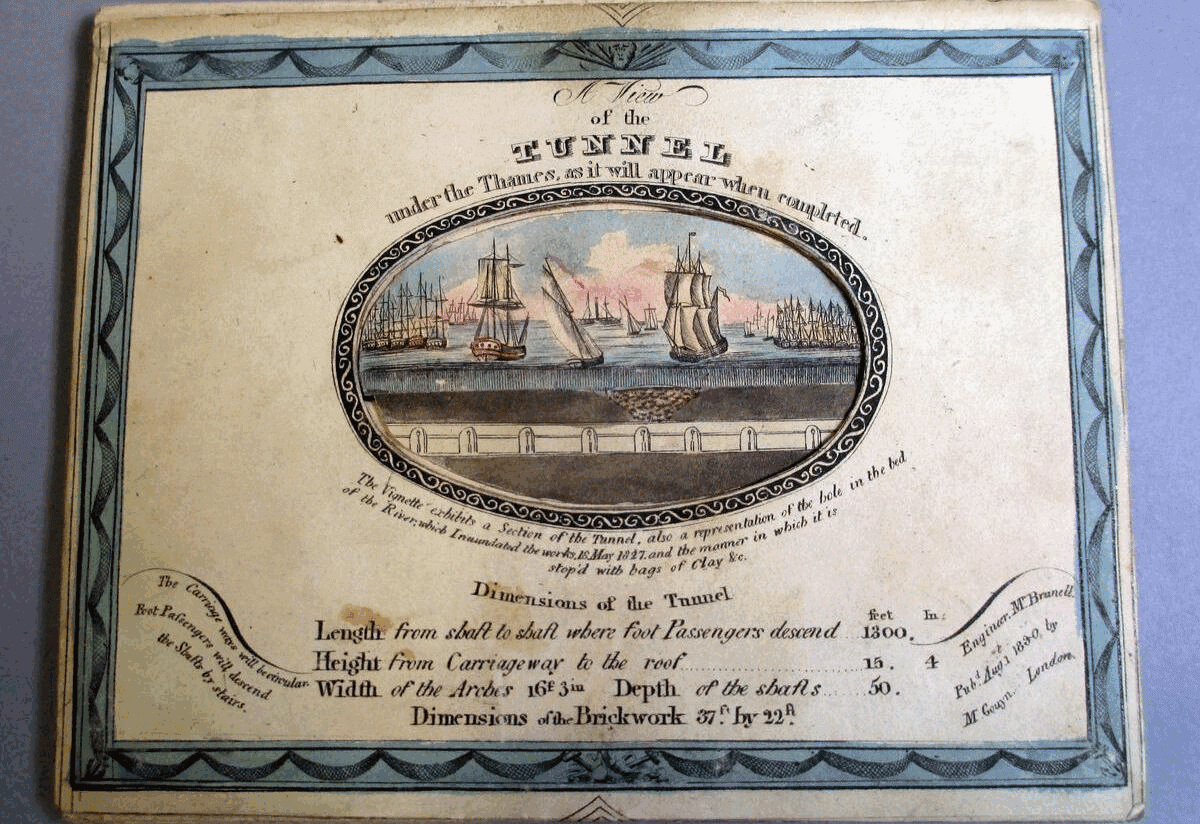 A View
of the
TUNNEL
under the Thames, as it will appear when completed.
The Vignette exhibits a Section of the Tunnel, also a representation of the hole in the bed
of the River, which Innundated the works, 18, May 1827. and the manner in which it is
stop'd with bags of Clay &c.
Dimensions of the Tunnel
feet In:
Length from shaft to shaft where foot Passengers descend 1300.
Height from Carriageway to the roof 15. 4
Width of the Arches 16f 3in Depth of the shafts 50.
Dimensions of the Brickwork 37ft. by 22ft.
The Carriage ways will be circular
Foot Passengers will descend
the Shafts by stairs.
Engineer, Mr Brunell
Pubd. Augst 1 1830, by
M Gouyn London.